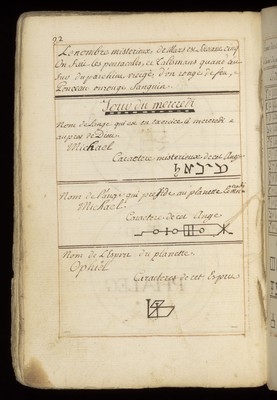 92
Le nombre misterieux de Mars est soixante cinq
On fait les pentacles, et Talismans quant au
Sur du parchemin vierge, d'un rouge de feu,
Ponceau ou rouge Sanguin.
Jour du mercredi
Nom de l'ange qui est en exercice le mercredi
aupres de Dieu
Michael
Caractere misterieux de cet Ange
Nom de l'ange qui preside au planette
Michael
Caractere de cet Ange
Nom de l'Esprit du planette
Ophiel
Caracteres de cet Esprit